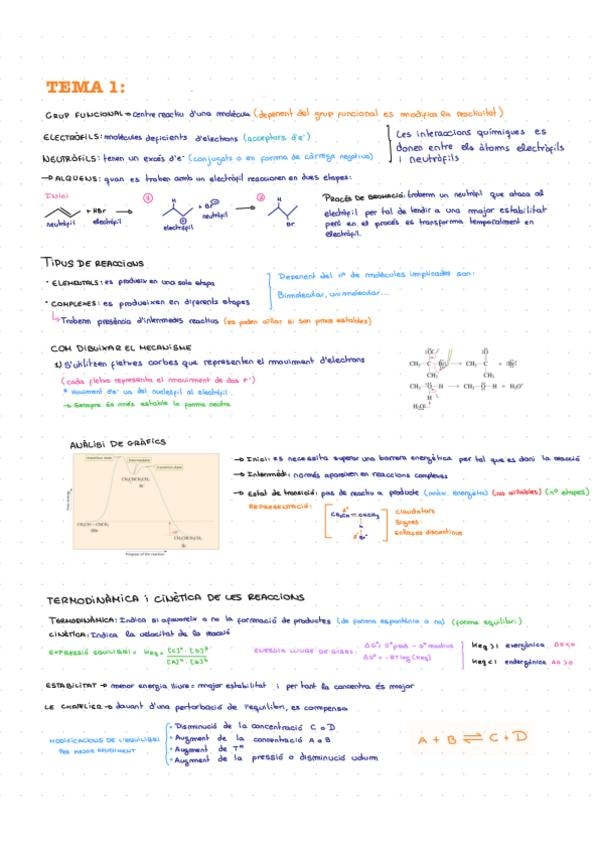 TEMA 1:
GRUP FUNCIONAL → centre reactiu d'una molècula (depenent del grup funcional es modifica la reactivitat)
ELECTRÒFILS: molècules deficients d'electrons (acceptors d'e⁻)
NEUTRÒFILS: tenen un excés d'e⁻ (conjugats o en forma de càrrega negativa)
Les interaccions químiques es
donen entre els àtoms electròfils
i neutròfils
→ ALQUENS: quan es troben amb un electròfil reaccionen en dues etapes:
INICI
① ②
+ HBr
neutròfil electròfil
H
electròfil
+ Br⊖
neutròfil
H
Br
PROCÉS DE BROMACIÓ: trobem un neutròfil que ataca al
electròfil per tal de tendir a una major estabilitat
però en el procés es transforma temporalment en
electròfil.
TIPUS DE REACCIONS
· ELEMENTALS: es produeixen en una sola etapa
· COMPLEXES: es produeixen en diferents etapes
↳ Trobem presència d'intermedis reactius (es poden aïllar si son prous estables)
Depenent del nº de molècules implicades són:
Bimolecular, unimolecular...
COM DIBUIXAR EL MECANISME
1) S'utilitzen fletxes corbes que representen el moviment d'electrons
(cada fletxa representa el moviment de dos e⁻)
* Moviment d'e⁻ va del nucleòfil al electròfil
→ Sempre és més estable la forma neutre
ANÀLISI DE GRÀFICS
transition state
intermediate
transition state
Free energy
Progress of the reaction
→ Inici: es necessita superar una barrera energètica per tal que es doni la reacció
→ Intermèdi: només apareixen en reaccions complexes
→ Estat de transició: pas de reactiu a producte (màx. energètic) (no aïllables) (nº etapes)
REPRESENTACIÓ:
Claudàtors
Signes
Enllaços discontinus
TERMODINÀMICA i CINÈTICA DE LES REACCIONS
TERMODINÀMICA: Indica si afavoreix o no la formació de productes (de forma espontània o no) (forma equilibri)
CINÈTICA: Indica la velocitat de la reacció
EXPRESSIÓ EQUILIBRI = Keq = [C]ᶜ · [D]ᵈ / [A]ᵃ · [B]ᵇ
ENERGIA LLIURE DE GIBBS:
ΔG°: G° prod - G° reactius
ΔG° = -RT log (Keq)
Keq > 1 exergònica ΔG < 0
Keq < 1 endergònica ΔG > 0
ESTABILITAT → menor energia lliure = major estabilitat i per tant la concentra és major
LE CHATELIER → davant d'una pertorbació de l'equilibri, es compensa
MODIFICACIONS DE L'EQUILIBRI
PER MAJOR RENDIMENT
· Disminució de la concentració C o D
· Augment de la concentració A o B
· Augment de Tª
· Augment de la pressió o disminució volum
A + B ⇌ C + D